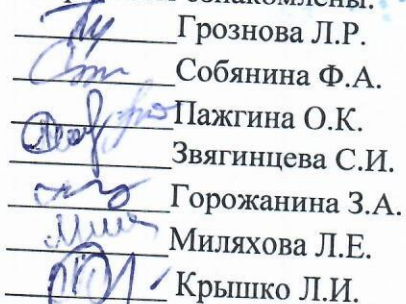 ознакомлены.
Грознова Л.Р.
Собянина Ф.А.
Пажгина О.К.
Звягинцева С.И.
Горожанина З.А.
Миляхова Л.Е.
Крышко Л.И.